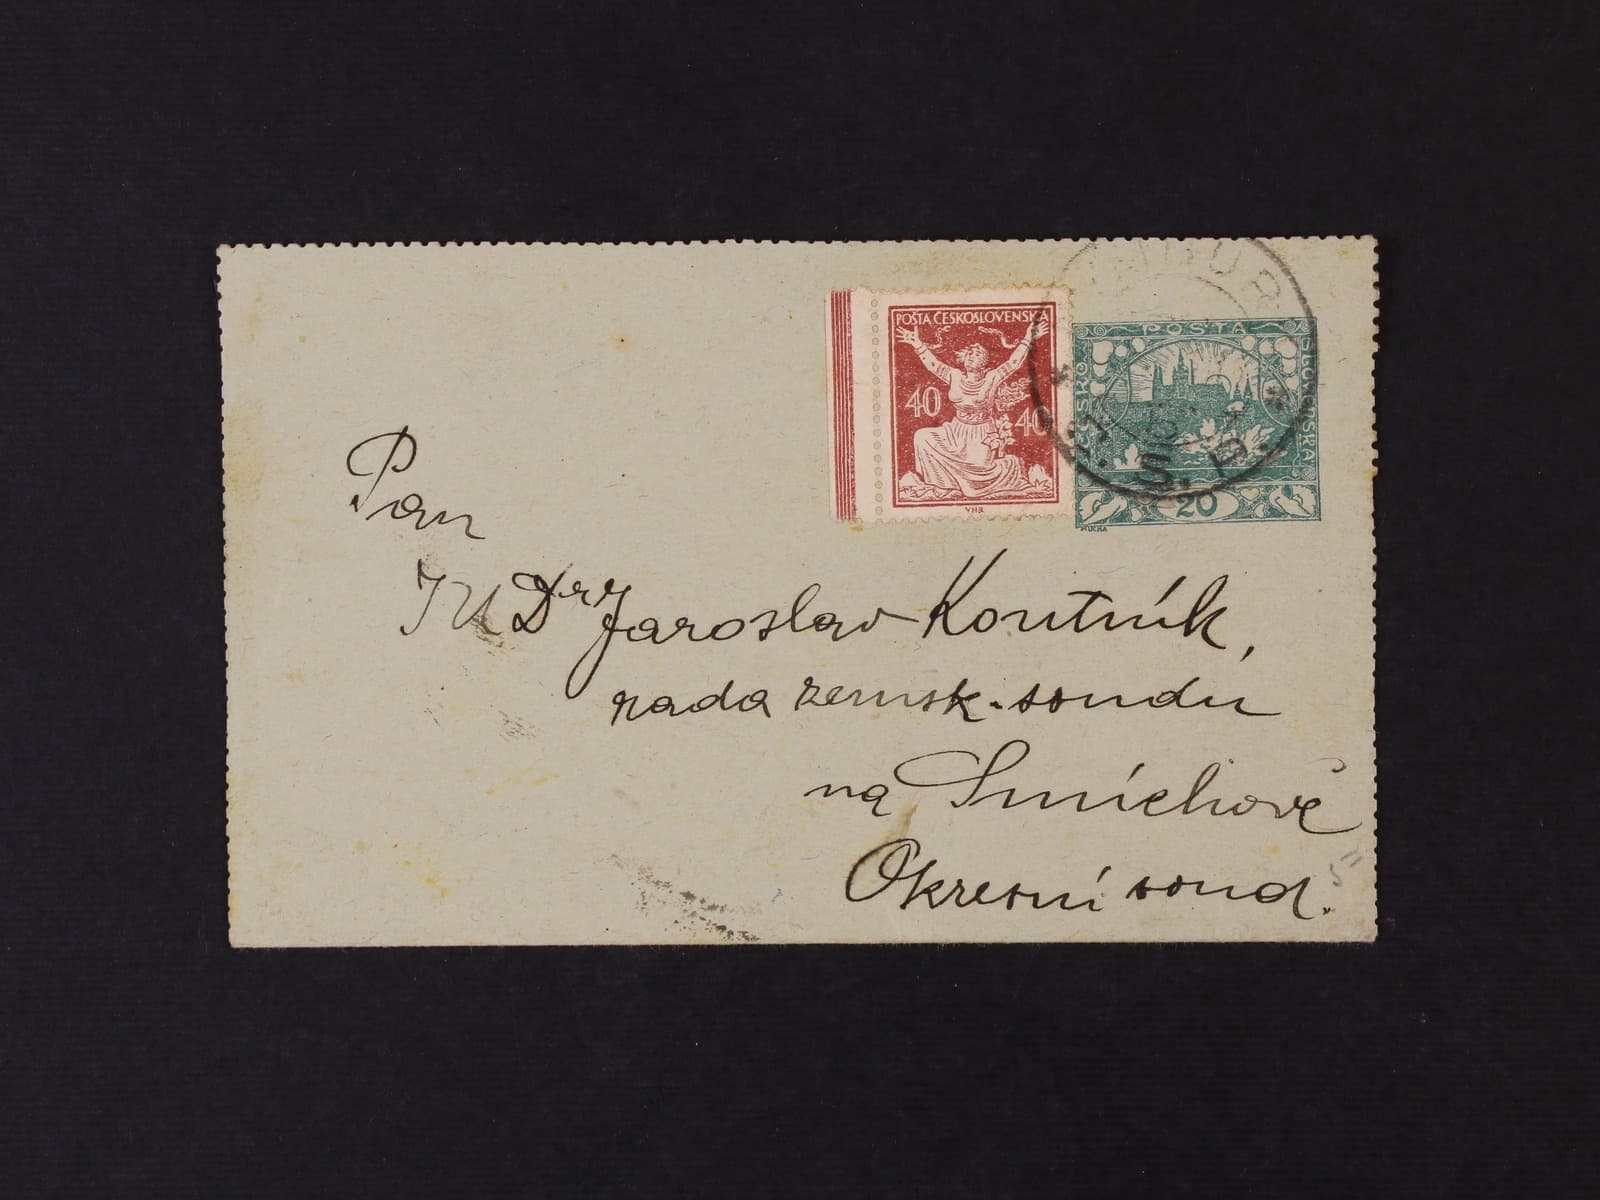 POŠTA ČESKOSLOVENSKÁ
40
40
VHB
POŠTA
ČESKO
SLOVENSKÁ
20
MUCHA
Pan
JUDr Jaroslav Koutník,
rada zemsk. soudu
na Smíchově
Okresní soud.